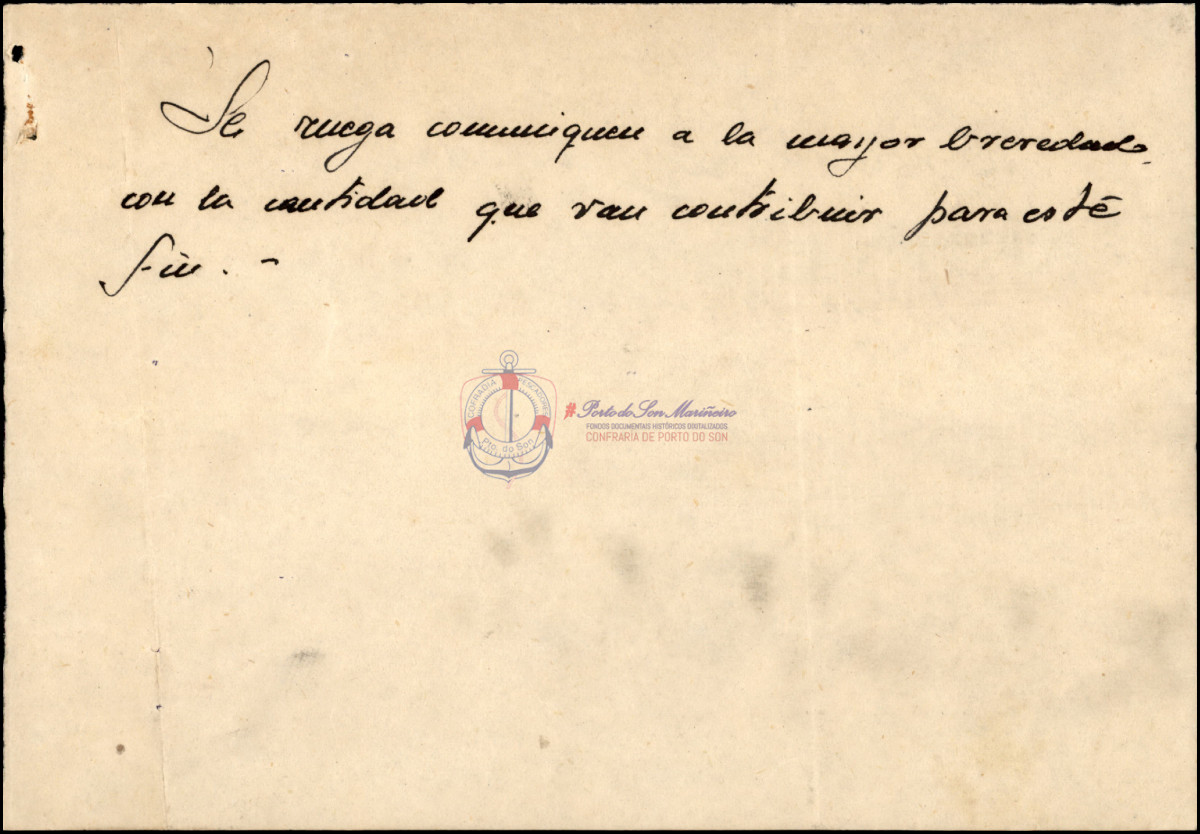 Se ruega comuniquen a la mayor brevedad
con la cantidad que van contribuir para esté
fin. -
COFRADIA PESCADORES
Pto. do Son
# Porto do Son Mariñeiro
FONDOS DOCUMENTAIS HISTÓRICOS DIXITALIZADOS
CONFRARIA DE PORTO DO SON